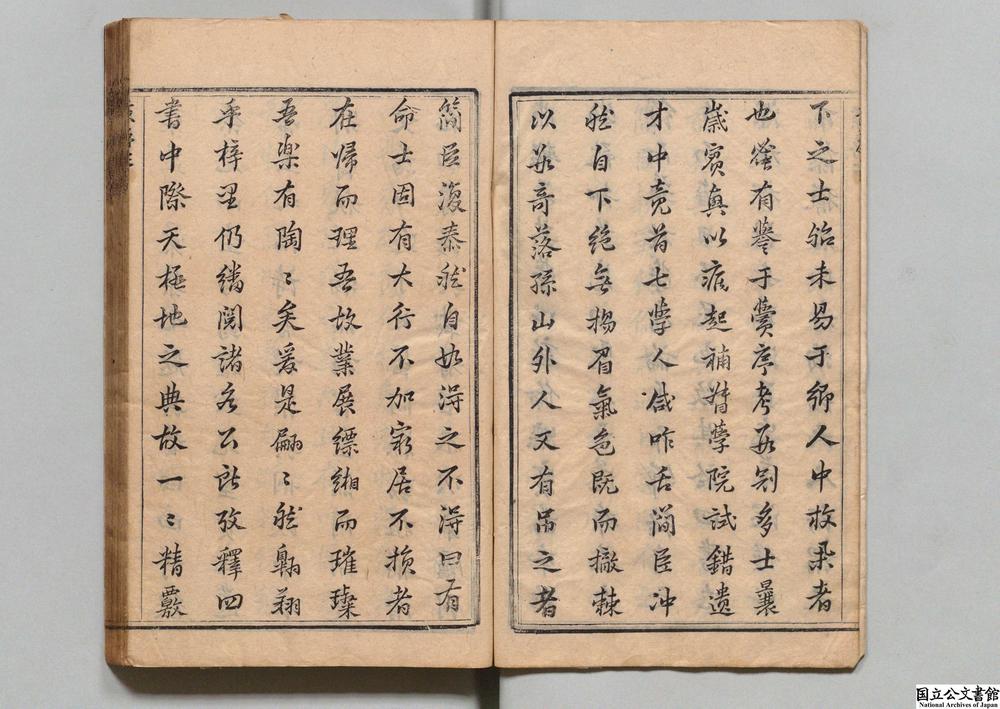 下之士貽未易于鄉人中收采者
也蜚有譽于黌序考每列多士曩
歲賓興以疾起補督學院試錯遺
才中竟首七學人咸咋舌簡臣沖
然自下絕無揚眉氣色既而撤棘
以數奇落孫山外人又有吊之者
簡臣復泰然自如淂之不淂曰有
命士固有大行不加窮居不損者
在帰而理吾故業展縹緗而璀璨
吾楽有陶〻矣爰是翩〻然翱翔
乎梓里仍繙閱諸名公所攷釋四
書中際天極地之典故一〻精覈
国立公文書館
National Archives of Japan